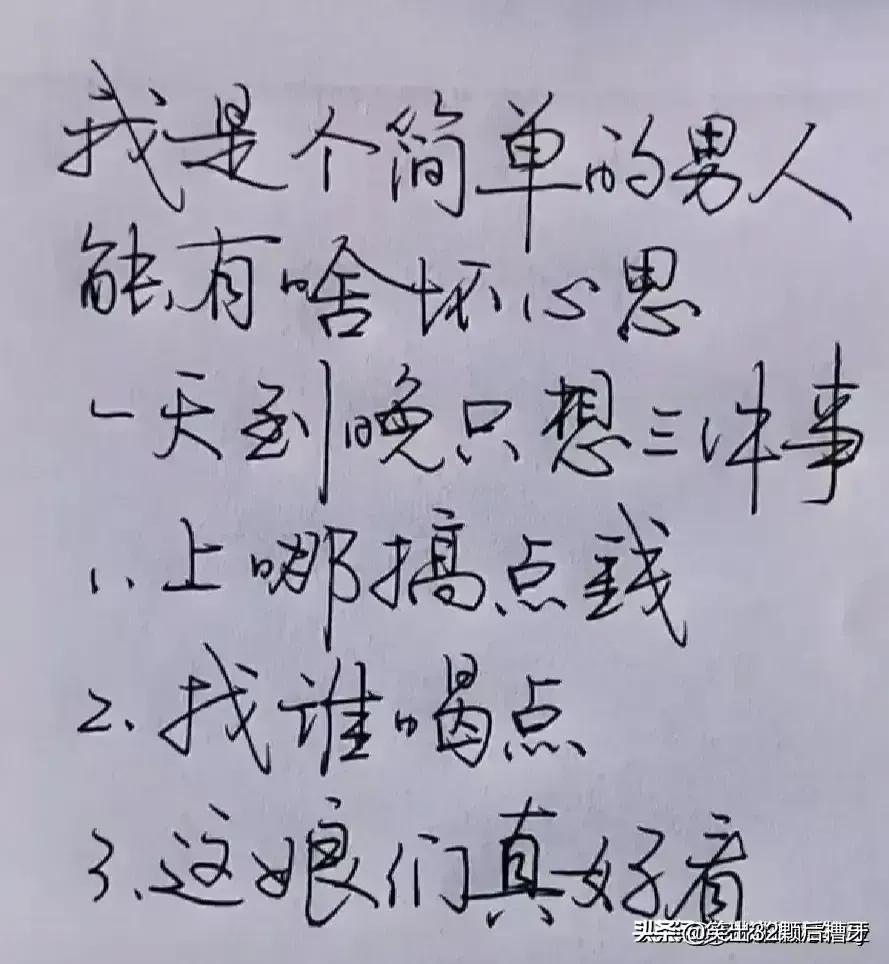 我是个简单的男人
能有啥坏心思
一天到晚只想三件事
1、上哪搞点钱
2、找谁喝点
3、这娘们真好看
头条@笑出32颗后槽牙